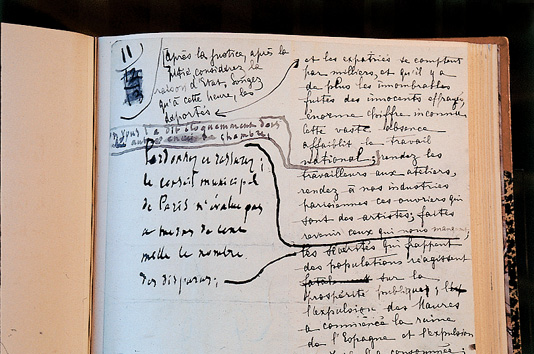 11
après la justice, après la
pitié considérez la
raison d'état. Songez
qu'à cette heure, les
déportés
l'a dit éloquemment dans
chambre,
Pardonnez ce ressaut;
le conseil municipal
de Paris n'évalue pas
à moins de cent
mille le nombre
des disparus;
et les expatriés se comptent
par milliers, et qu'il y a
de plus les innombrables
fuites des innocents effrayés,
l'énorme chiffre inconnu
cette vaste absence
affaiblit le travail
national; rendez les
travailleurs aux ateliers,
rendez à nos industries
parisiennes ces ouvriers qui
sont des artistes; faites
revenir ceux qui nous manquent;
les sévérités qui frappent
des populations réagissent
sur la
prospérité publique;
l'expulsion des Maures
a commencé la ruine
de l'Espagne et l'expulsion
consommée;